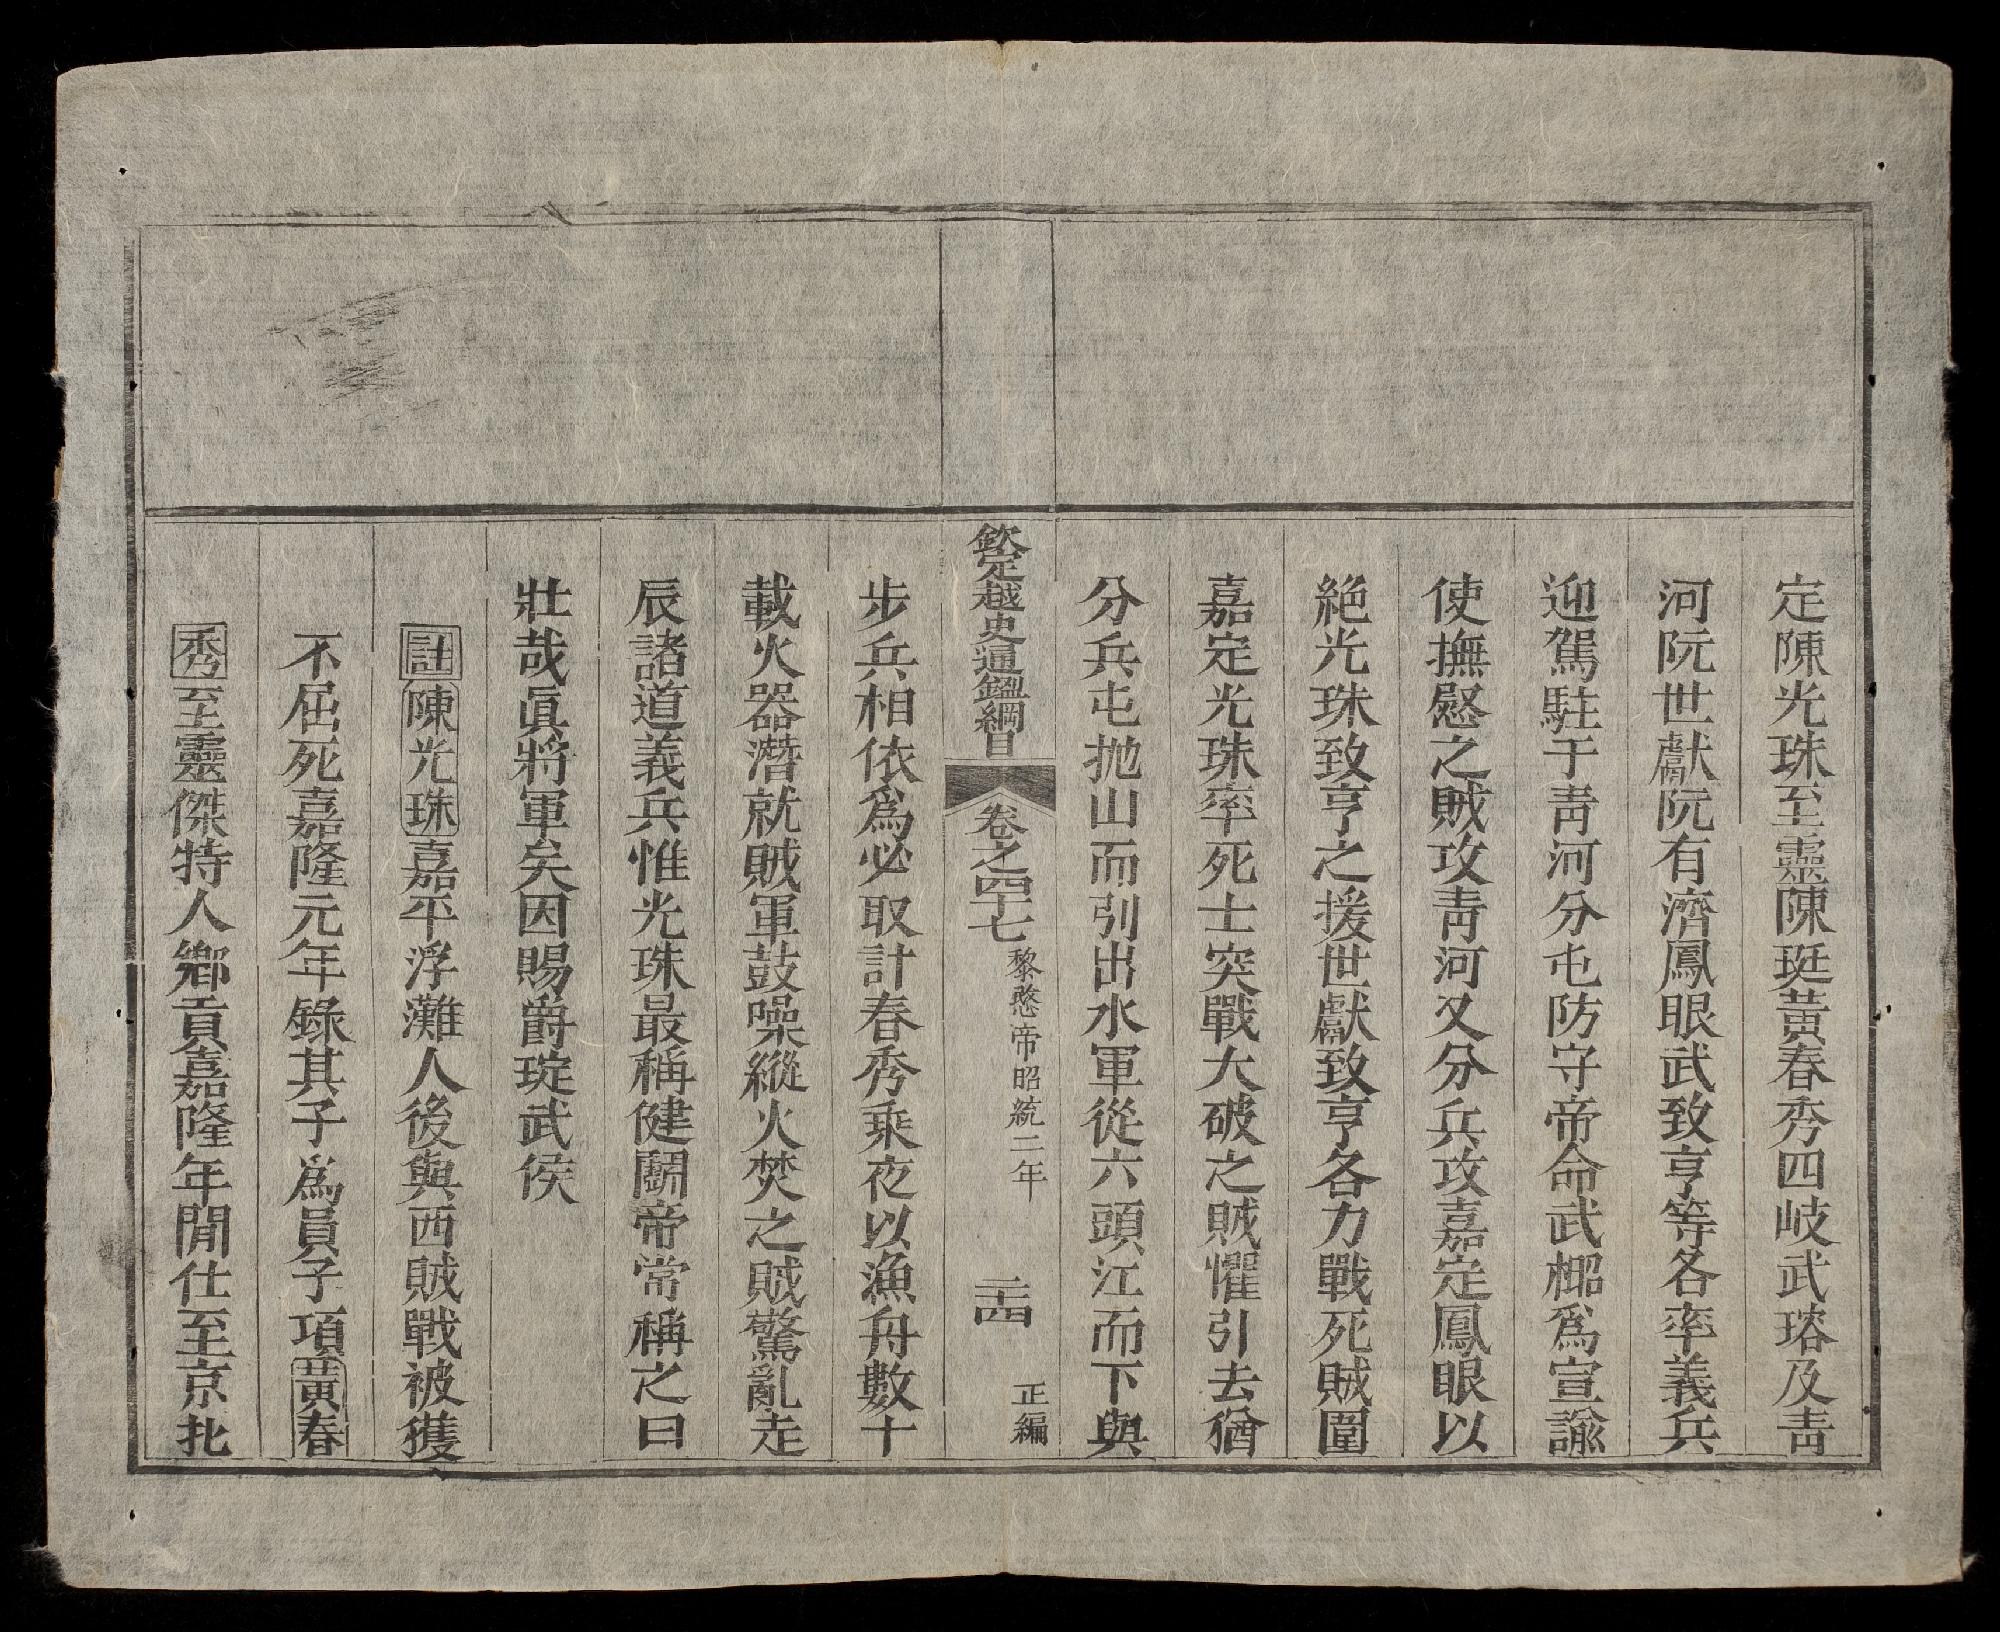 定陳光珠至靈陳珽黃春秀四岐武瑢及靑
河阮世獻阮有濟鳳眼武致亨等各率義兵
迎駕駐于靑河分屯防守帝命武槨爲宣諭
使撫慰之賊攻靑河又分兵攻嘉定鳳眼以
絶光珠致亨之援世獻致亨各力戰死賊圍
嘉定光珠率死士突戰大破之賊懼引去猶
分兵屯拋山而引出水軍從六頭江而下與
欽定越史通鑑綱目 卷之四十七 黎愍帝昭統二年 二十四 正編
步兵相依爲必取計春秀乘夜以漁舟數十
載火器潛就賊軍鼓噪縱火焚之賊驚亂走
辰諸道義兵惟光珠最稱健鬭帝常稱之曰
壯哉眞將軍矣因賜爵琔武侯
註陳光珠嘉平浮灘人後與西賊戰被獲
不屈死嘉隆元年錄其子爲員子項黃春
秀至靈傑特人鄕貢嘉隆年閒仕至京北